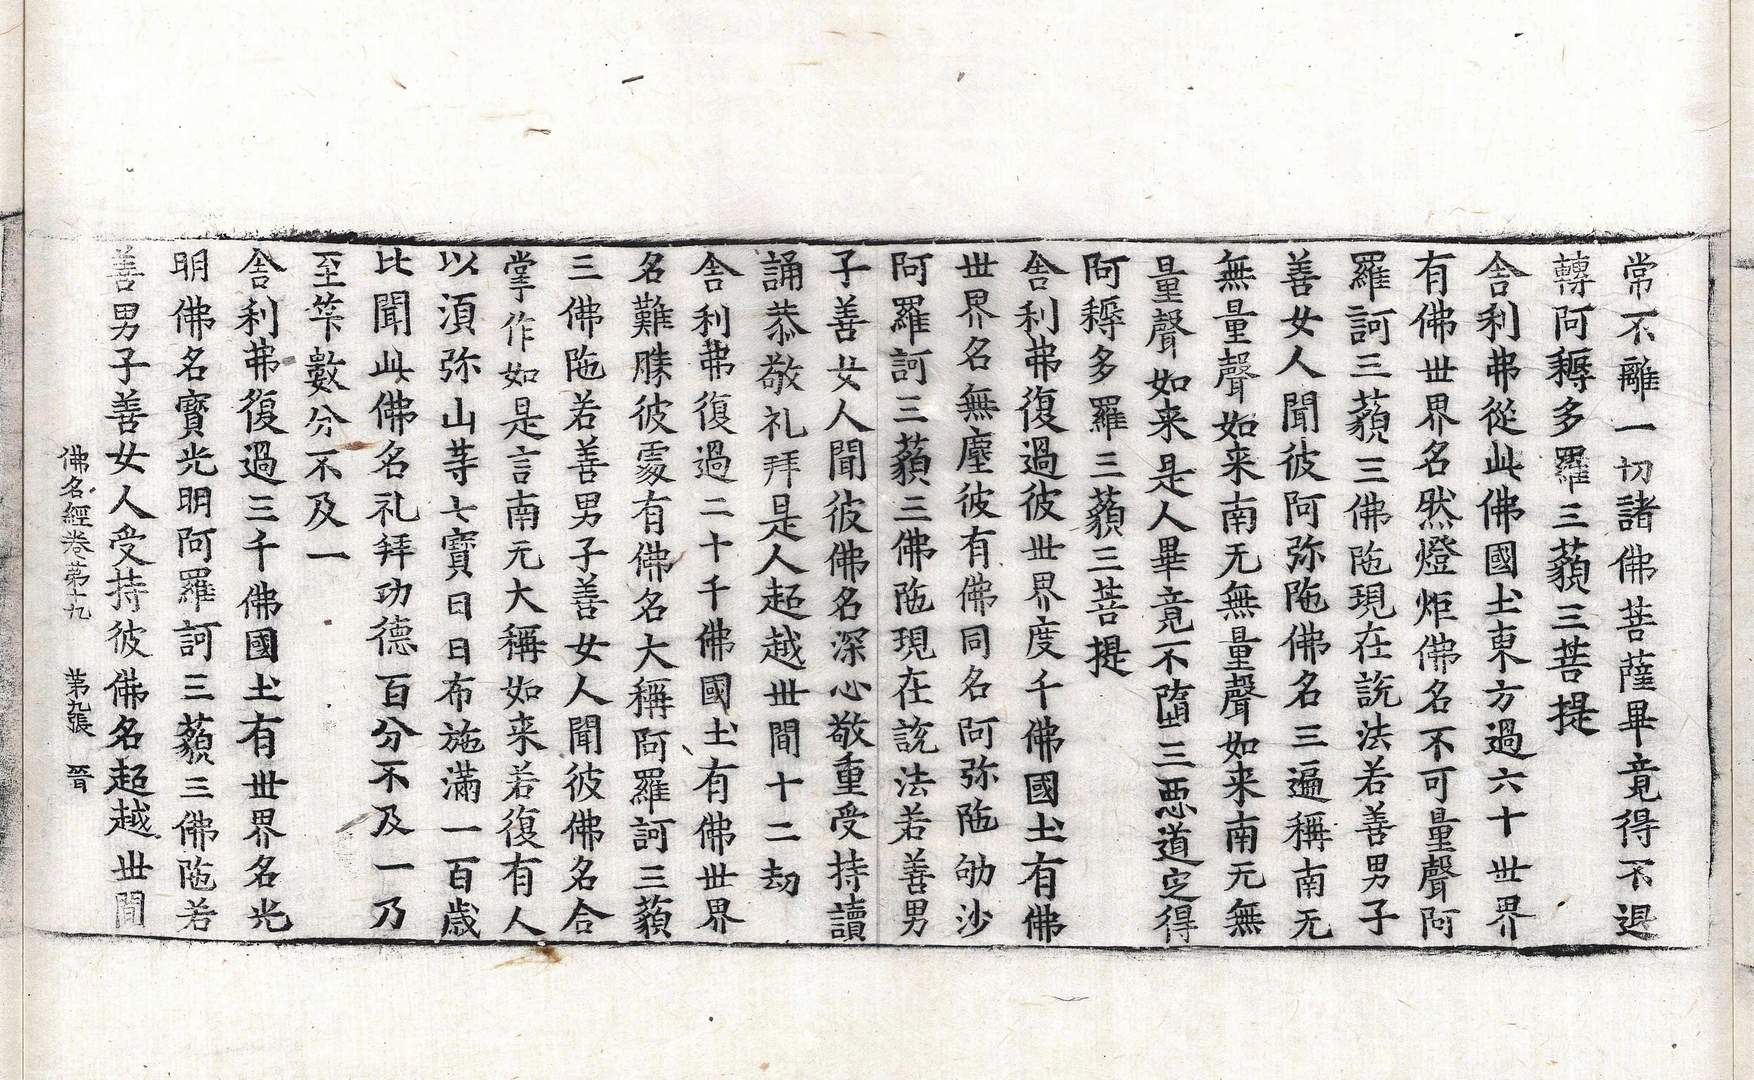 常不離一切諸佛菩薩畢竟得不退
轉阿耨多羅三藐三菩提
舍利弗從此佛國土東方過六十世界
有佛世界名然燈炬佛名不可量聲阿
羅訶三藐三佛陁現在說法若善男子
善女人聞彼阿弥陁佛名三遍稱南无
無量聲如来南无無量聲如来南无無
量聲如来是人畢竟不墮三惡道定得
阿耨多羅三藐三菩提
舍利弗復過彼世界度千佛國土有佛
世界名無塵彼有佛同名阿弥陁劬沙
阿羅訶三藐三佛陁現在說法若善男
子善女人聞彼佛名深心敬重受持讀
誦恭敬礼拜是人超越世間十二劫
舍利弗復過二十千佛國土有佛世界
名難勝彼處有佛名大稱阿羅訶三藐
三佛陁若善男子善女人聞彼佛名合
掌作如是言南无大稱如来若復有人
以湏弥山等七寶日日布施滿一百歲
比聞此佛名礼拜功德百分不及一乃
至筭數分不及一
舍利弗復過三千佛國土有世界名光
明佛名寶光明阿羅訶三藐三佛陁若
善男子善女人受持彼佛名超越世間
佛名經卷第十九　第九張　晉